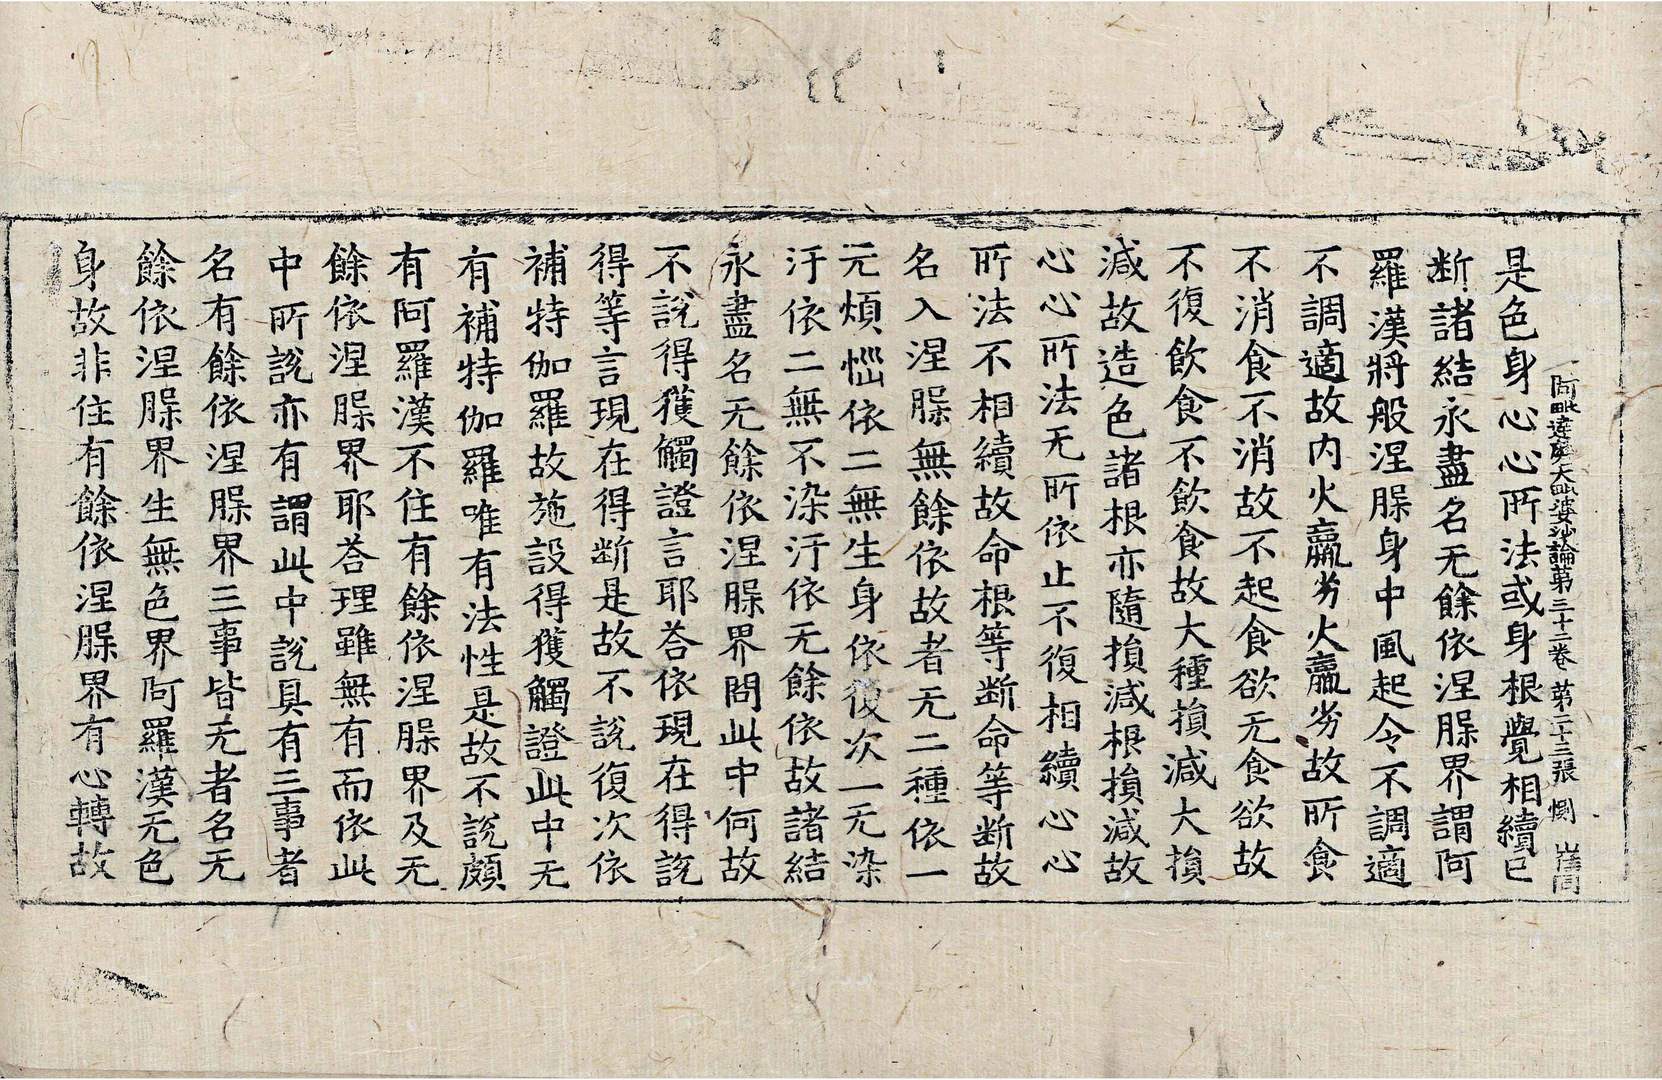 阿毗達磨大毗婆沙論第三十二卷 第二十三張 惻
是色身心心所法或身根覺相續已
断諸結永盡名无餘依涅脲界謂阿
羅漢將般涅脲身中風起令不調適
不調適故内火羸劣火羸劣故所食
不消食不消故不起食欲无食欲故
不復飲食不飲食故大種損減大損
減故造色諸根亦隨損減根損減故
心心所法无所依止不復相續心心
所法不相續故命根等断命等断故
名入涅脲無餘依故者无二種依一
无煩惱依二無生身依復次一无染
汙依二無不染汙依无餘依故諸結
永盡名无餘依涅脲界問此中何故
不說得獲觸證言耶荅依現在得說
得等言現在得断是故不說復次依
補特伽羅故施設得獲觸證此中无
有補特伽羅唯有法性是故不說頗
有阿羅漢不住有餘依涅脲界及无
餘依涅脲界耶荅理雖無有而依此
中所說亦有謂此中說具有三事者
名有餘依涅脲界三事皆无者名无
餘依涅脲界生無色界阿羅漢无色
身故非住有餘依涅脲界有心轉故